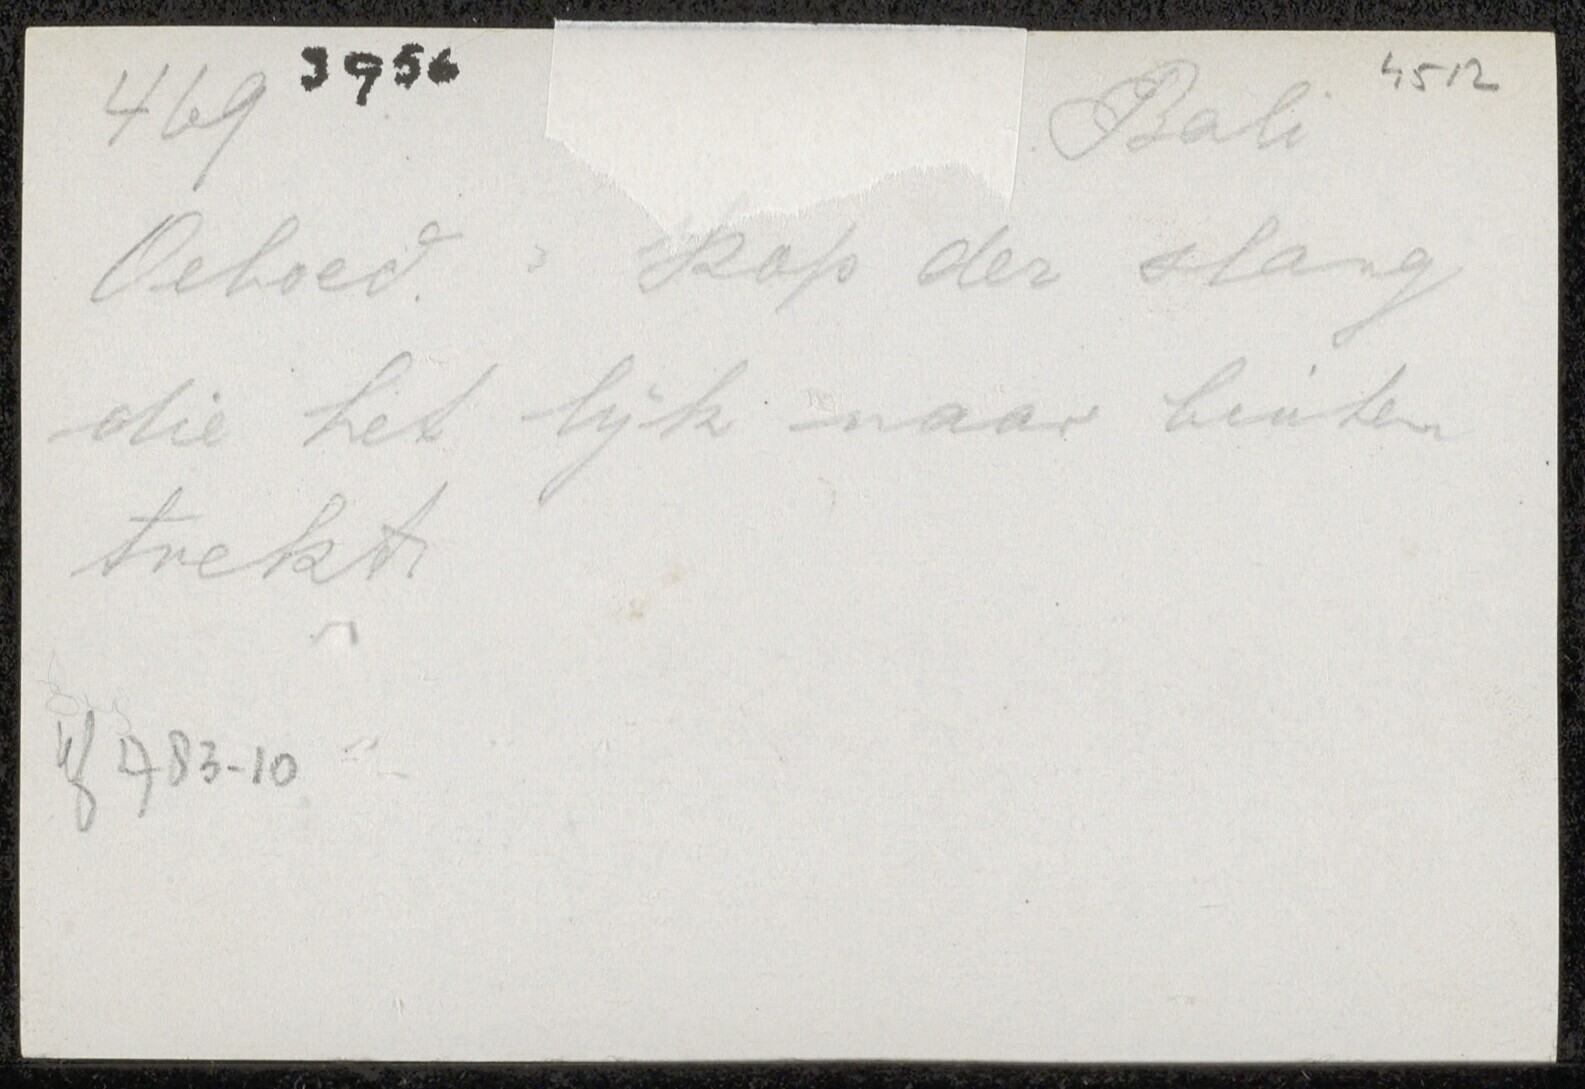 469 3956 Bali 4512
Oeboed. Kop der slang
die het lijk naar buiten
trekt
783-10